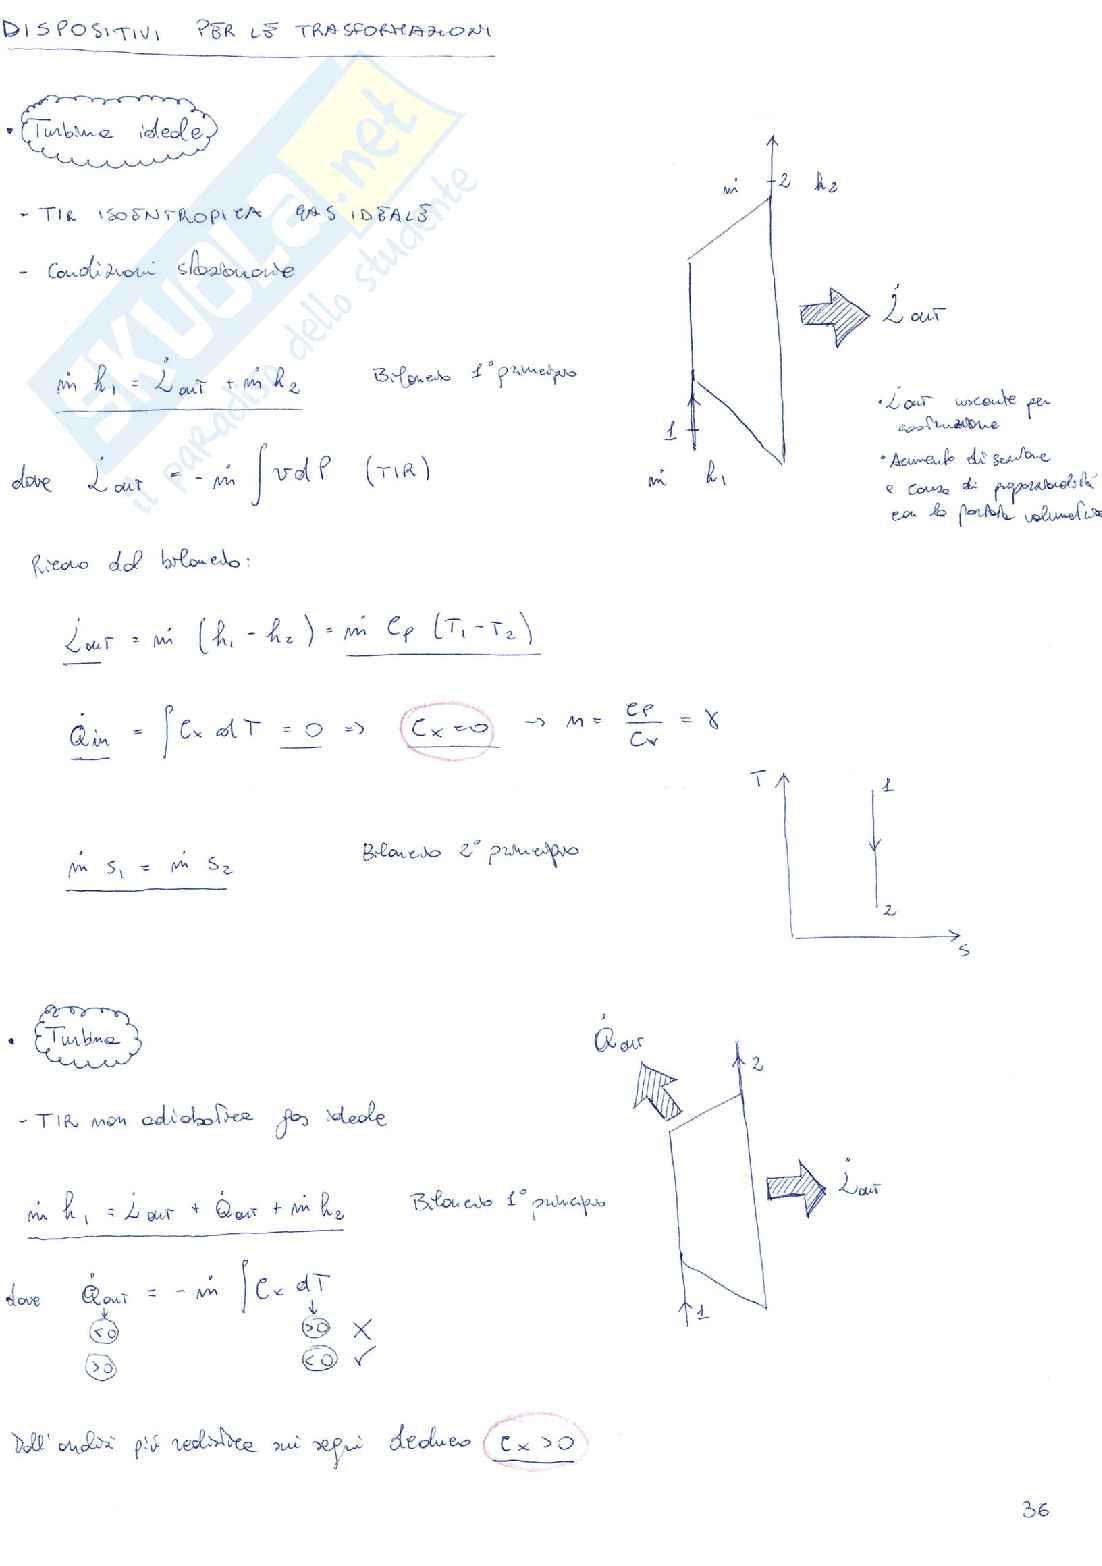 DISPOSITIVI PER LE TRASFORMAZIONI
• Turbina ideale
- TIR ISOENTROPICA GAS IDEALE
- Condizioni stazionarie
ṁ h₁ = L̇out + ṁ h₂ Bilancio 1° principio
dove L̇out = - ṁ ∫ v dP (TIR)
ṁ 2 h₂
L̇out
1
ṁ h₁
• L̇out uscente per
costruzione
• Aumento di sezione
a causa di proporzionalità
con la portata volumetrica
Ricavo dal bilancio:
L̇out = ṁ (h₁ - h₂) = ṁ Cp (T₁ - T₂)
Q̇in = ∫ Cx dT = 0 => Cx = 0 → n = CP/Cv = γ
ṁ s₁ = ṁ s₂ Bilancio 2° principio
T
1
2
S
• Turbina
- TIR non adiabatica gas ideale
ṁ h₁ = L̇out + Q̇out + ṁ h₂ Bilancio 1° principio
dove Q̇out = - ṁ ∫ Cx dT
<0 >0 X
>0 <0 ✓
Q̇out
2
L̇out
1
Dall'analisi più realistica sui segni deduco Cx > 0
36
SKUOLA.net
il paradiso dello studente